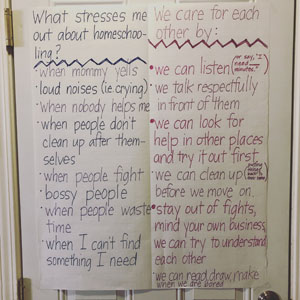 What stresses me
out about homeschoo-
ling?
• when mommy yells
• loud noises (ie crying)
• When nobody helps me
• when people don't
clean up after them-
selves
• when people fight
• bossy people
• when people waste
time
• when I can't find
something I need
We care for each
other by:
• we can listen (or say, "I
need
minutes."
• we talk respectfully
in front of them
• we can look for
help in other places
and try it out first
• we can clean up
before we move on.
• stay out of fights,
mind your own business,
we can try to understand
each other
• we can read, draw, make
when we are bored